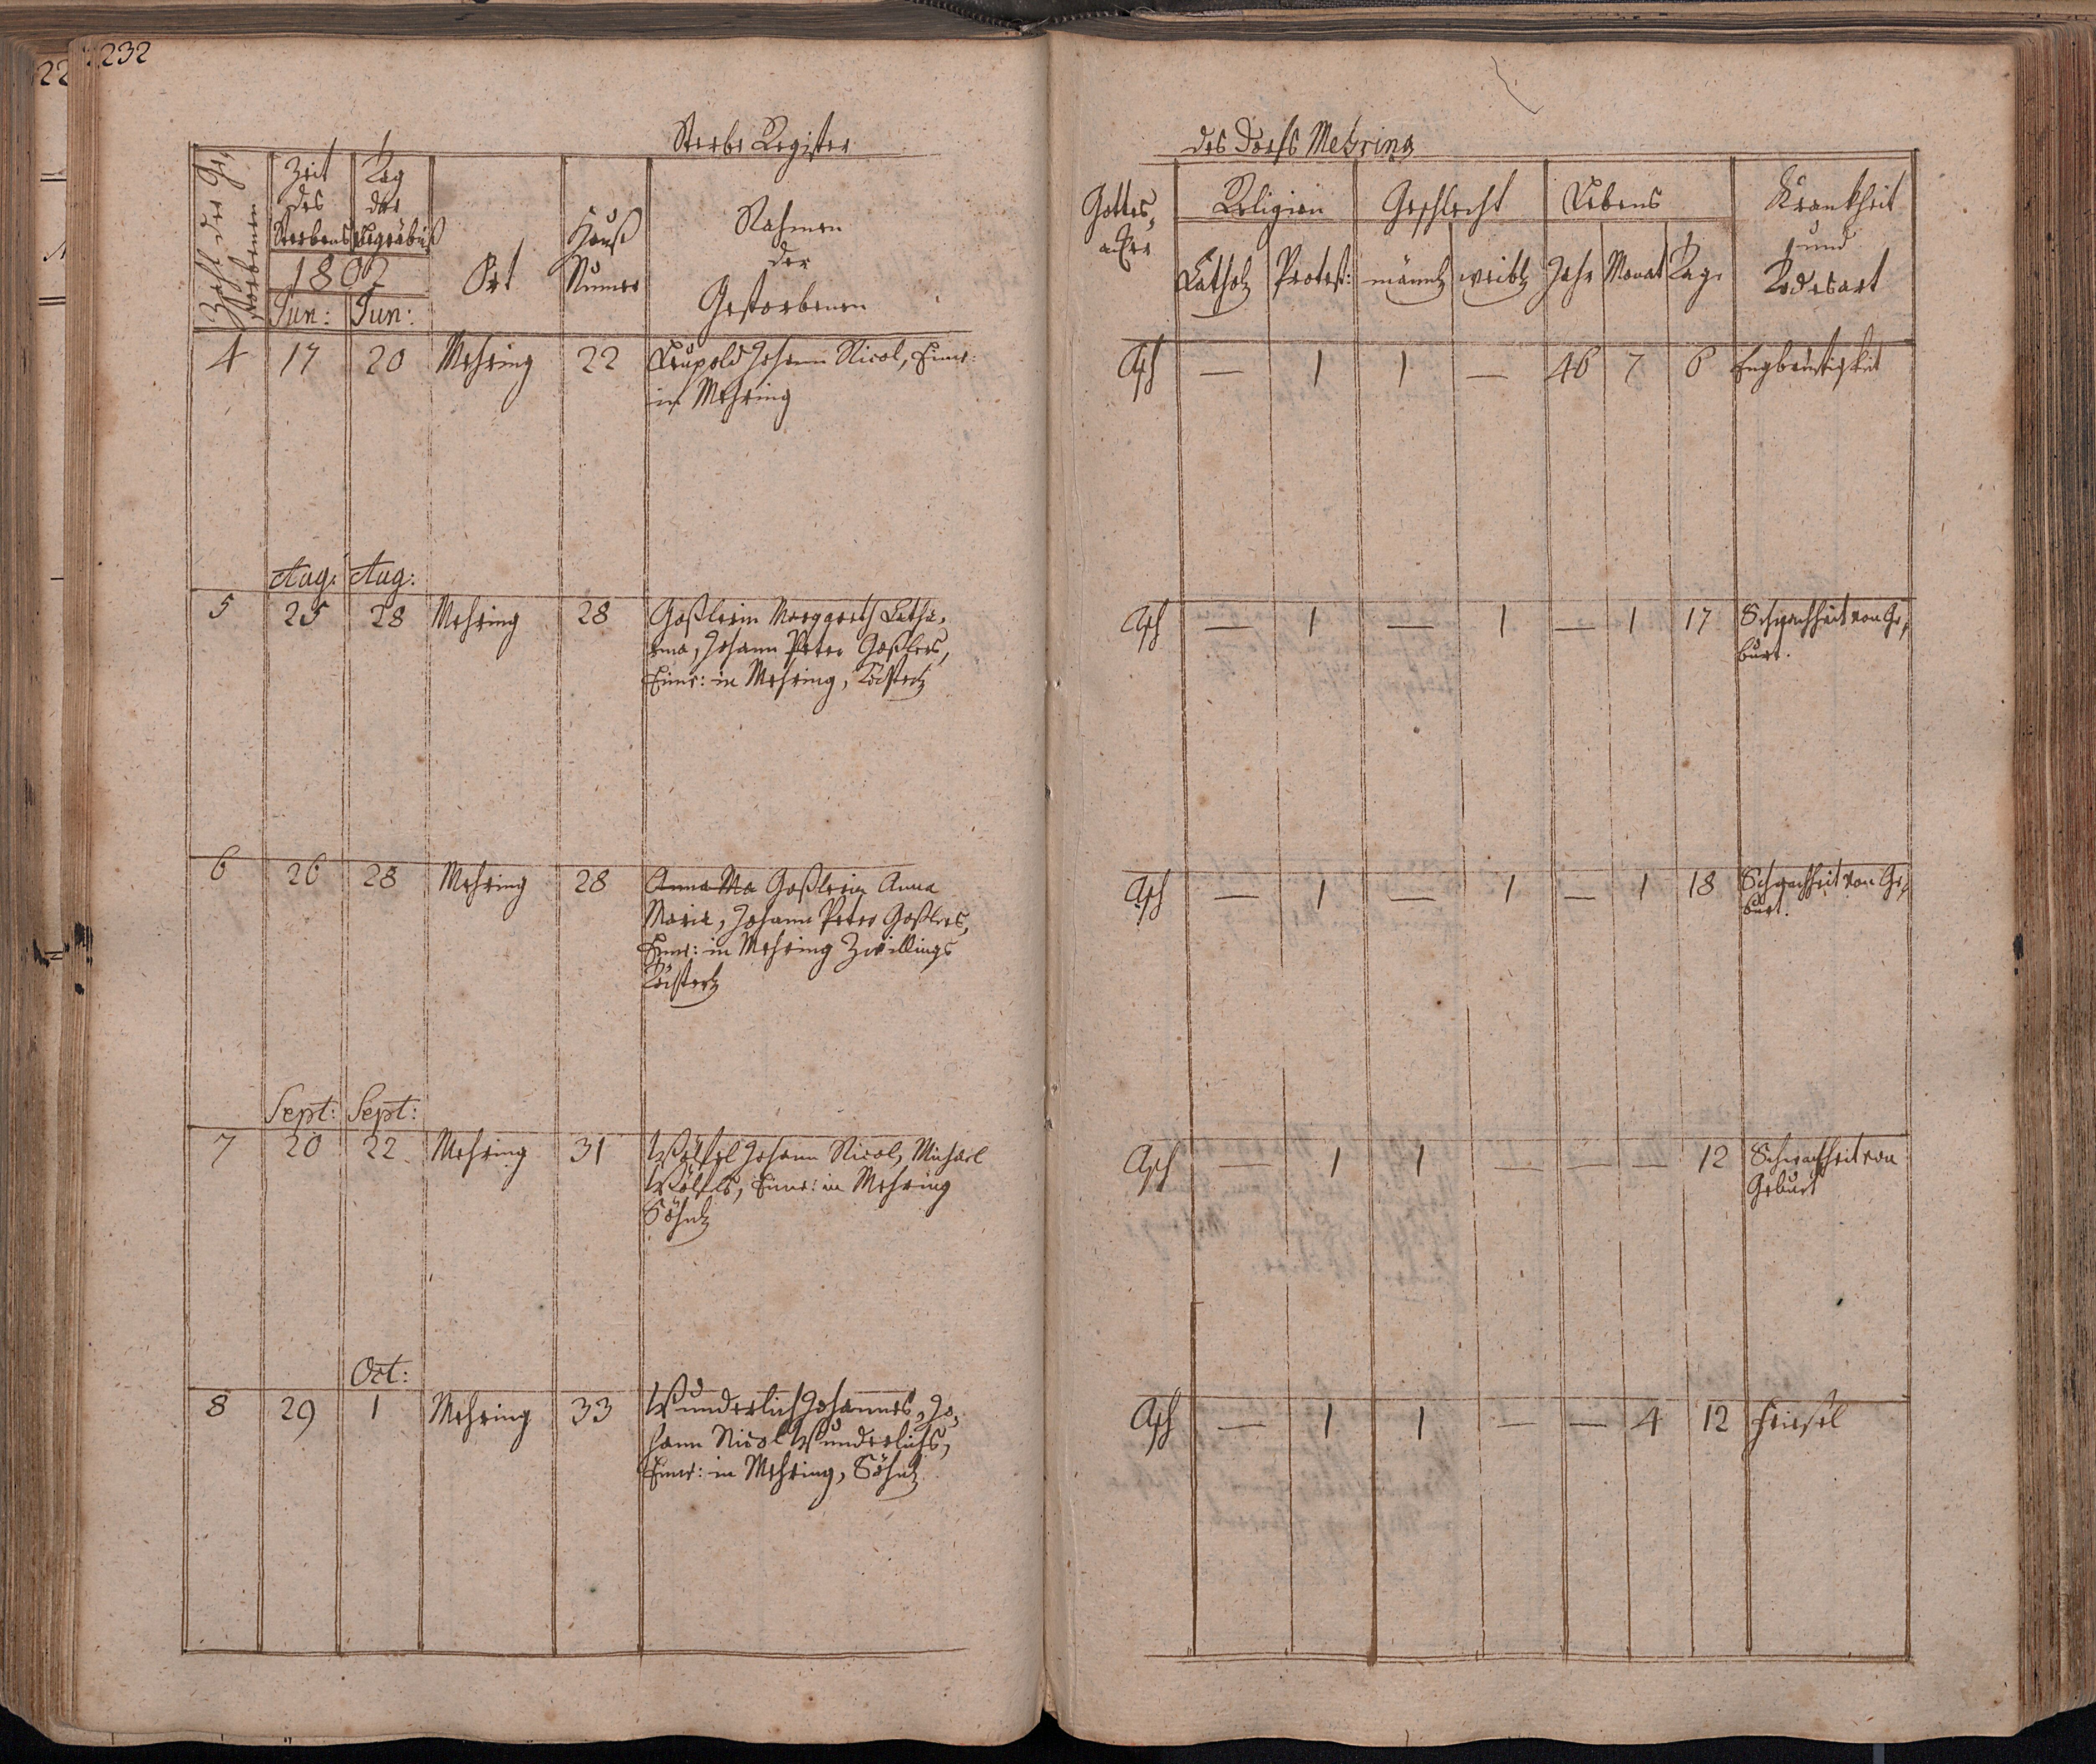 232
22
Sterbe Register
des Dorfs Mehring
Zahl der Ge-
storbenen
Zeit
des
Sterbens
Tag
der
Begräbniß
1802
Jun: Jun:
Ort
Hauß
Numer
Nahmen
der
Gestorbenen
Gottes-
acker
Religion
Kathol. Protest:
Geschlecht
männl. weibl.
Lebens
Jahr Monat Tage
Krankheit
und
Todesart
4 17 20 Mehring 22 Leupold Johann Nicol, Einw:
in Mehring
Asch — 1 1 — 46 7 6 Engbrüstigkeit
Aug: Aug:
5 25 28 Mehring 28 Goßlerin Margareth Catha-
rina, Johann Peter Goßlers,
Einw: in Mehring, Töchterl.
Asch — 1 — 1 — 1 17 Schwachheit von Ge-
burt.
6 26 28 Mehring 28 Anna Ma Goßlerin Anna
Maria, Johann Peter Goßlers,
Einw: in Mehring Zwillings
Töchterl.
Asch — 1 — 1 — 1 18 Schwachheit von Ge-
burt.
Sept: Sept:
7 20 22 Mehring 31 Wölfel Johann Nicol, Michael
Wölfels, Einw: in Mehring
Söhnl.
Asch — 1 1 — — — 12 Schwachheit von
Geburt
Oct:
8 29 1 Mehring 33 Wunderlich Johannes, Jo-
hann Nicol Wunderlichs,
Einw: in Mehring, Söhnl.
Asch — 1 1 — — 4 12 Friesel